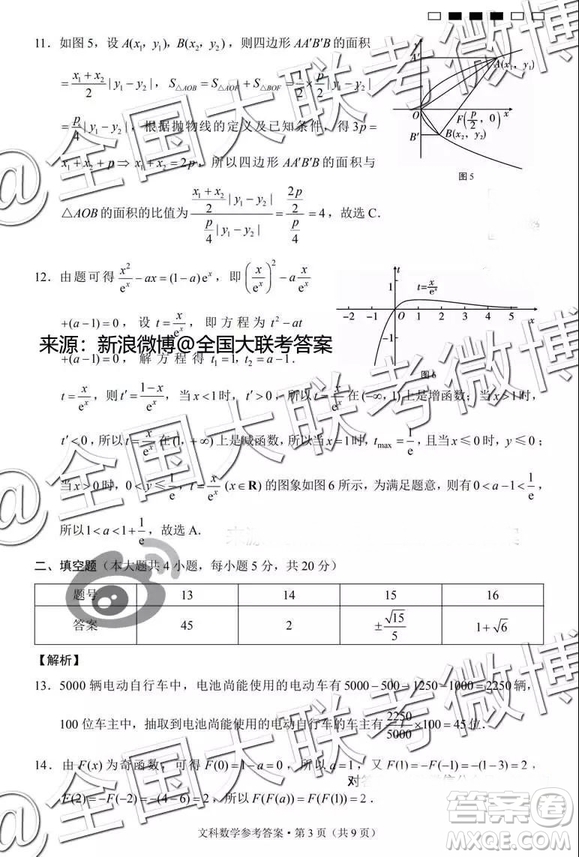 11. 如图5，设A(x₁, y₁)，B(x₂, y₂)，则四边形AA′B′B的面积
=\frac{x₁+x₂}{2}|y₁−y₂|，S△AOB=S△AOF+S△BOF=\frac{1}{2}×\frac{p}{2}|y₁−y₂|
=\frac{p}{4}|y₁−y₂|，根据抛物线的定义及已知条件，得3p=
x₁+x₂+p⇒x₁+x₂=2p，所以四边形AA′B′B的面积与
△AOB的面积的比值为\frac{\frac{x₁+x₂}{2}|y₁−y₂|}{\frac{p}{4}|y₁−y₂|}=\frac{\frac{2p}{2}}{\frac{p}{4}}=4，故选C.
y
A′
A(x₁, y₁)
O
F(\frac{p}{2}, 0)
x
B′
B(x₂, y₂)
图5
12. 由题可得\frac{x²}{eˣ}−ax=(1−a)eˣ，即(\frac{x}{eˣ})²−a\frac{x}{eˣ}
+(a−1)=0，设t=\frac{x}{eˣ}，即方程为t²−at
+(a−1)=0，解方程得t₁=1，t₂=a−1.
t=\frac{x}{eˣ}，则t′=\frac{1−x}{eˣ}，当x<1时，t′>0，所以t=\frac{x}{eˣ}在(−∞, 1)上是增函数；当x>1时，
t′<0，所以t=\frac{x}{eˣ}在(1, +∞)上是减函数，所以当x=1时，t_max=\frac{1}{e}，且当x≤0时，y≤0；
当x>0时，0<y≤\frac{1}{e}，t=\frac{x}{eˣ}(x∈R)的图象如图6所示，为满足题意，则有0<a−1<\frac{1}{e}，
所以1<a<1+\frac{1}{e}，故选A.
t
1
t=\frac{x}{eˣ}
−2 −1 O 1 2 3 4 5 x
图6
来源：新浪微博@全国大联考答案
二、填空题（本大题共4小题，每小题5分，共20分）
题号 13 14 15 16
答案 45 2 ±\frac{√15}{5} 1+√6
【解析】
13. 5000辆电动自行车中，电池尚能使用的电动车有5000−500−1250−1000=2250辆，
100位车主中，抽取到电池尚能使用的车主有\frac{2250}{5000}×100=45位.
14. 由F(x)为奇函数，可得F(0)=1−a=0，所以a=1，又F(1)=−F(−1)=−(1−3)=2，
F(2)=−F(−2)=−(4−6)=2，所以F(F(a))=F(F(1))=F(2)=2.
文科数学参考答案·第3页（共9页）
@全国大联考微博
@全国大联考微博
答案圈
MXQE.COM